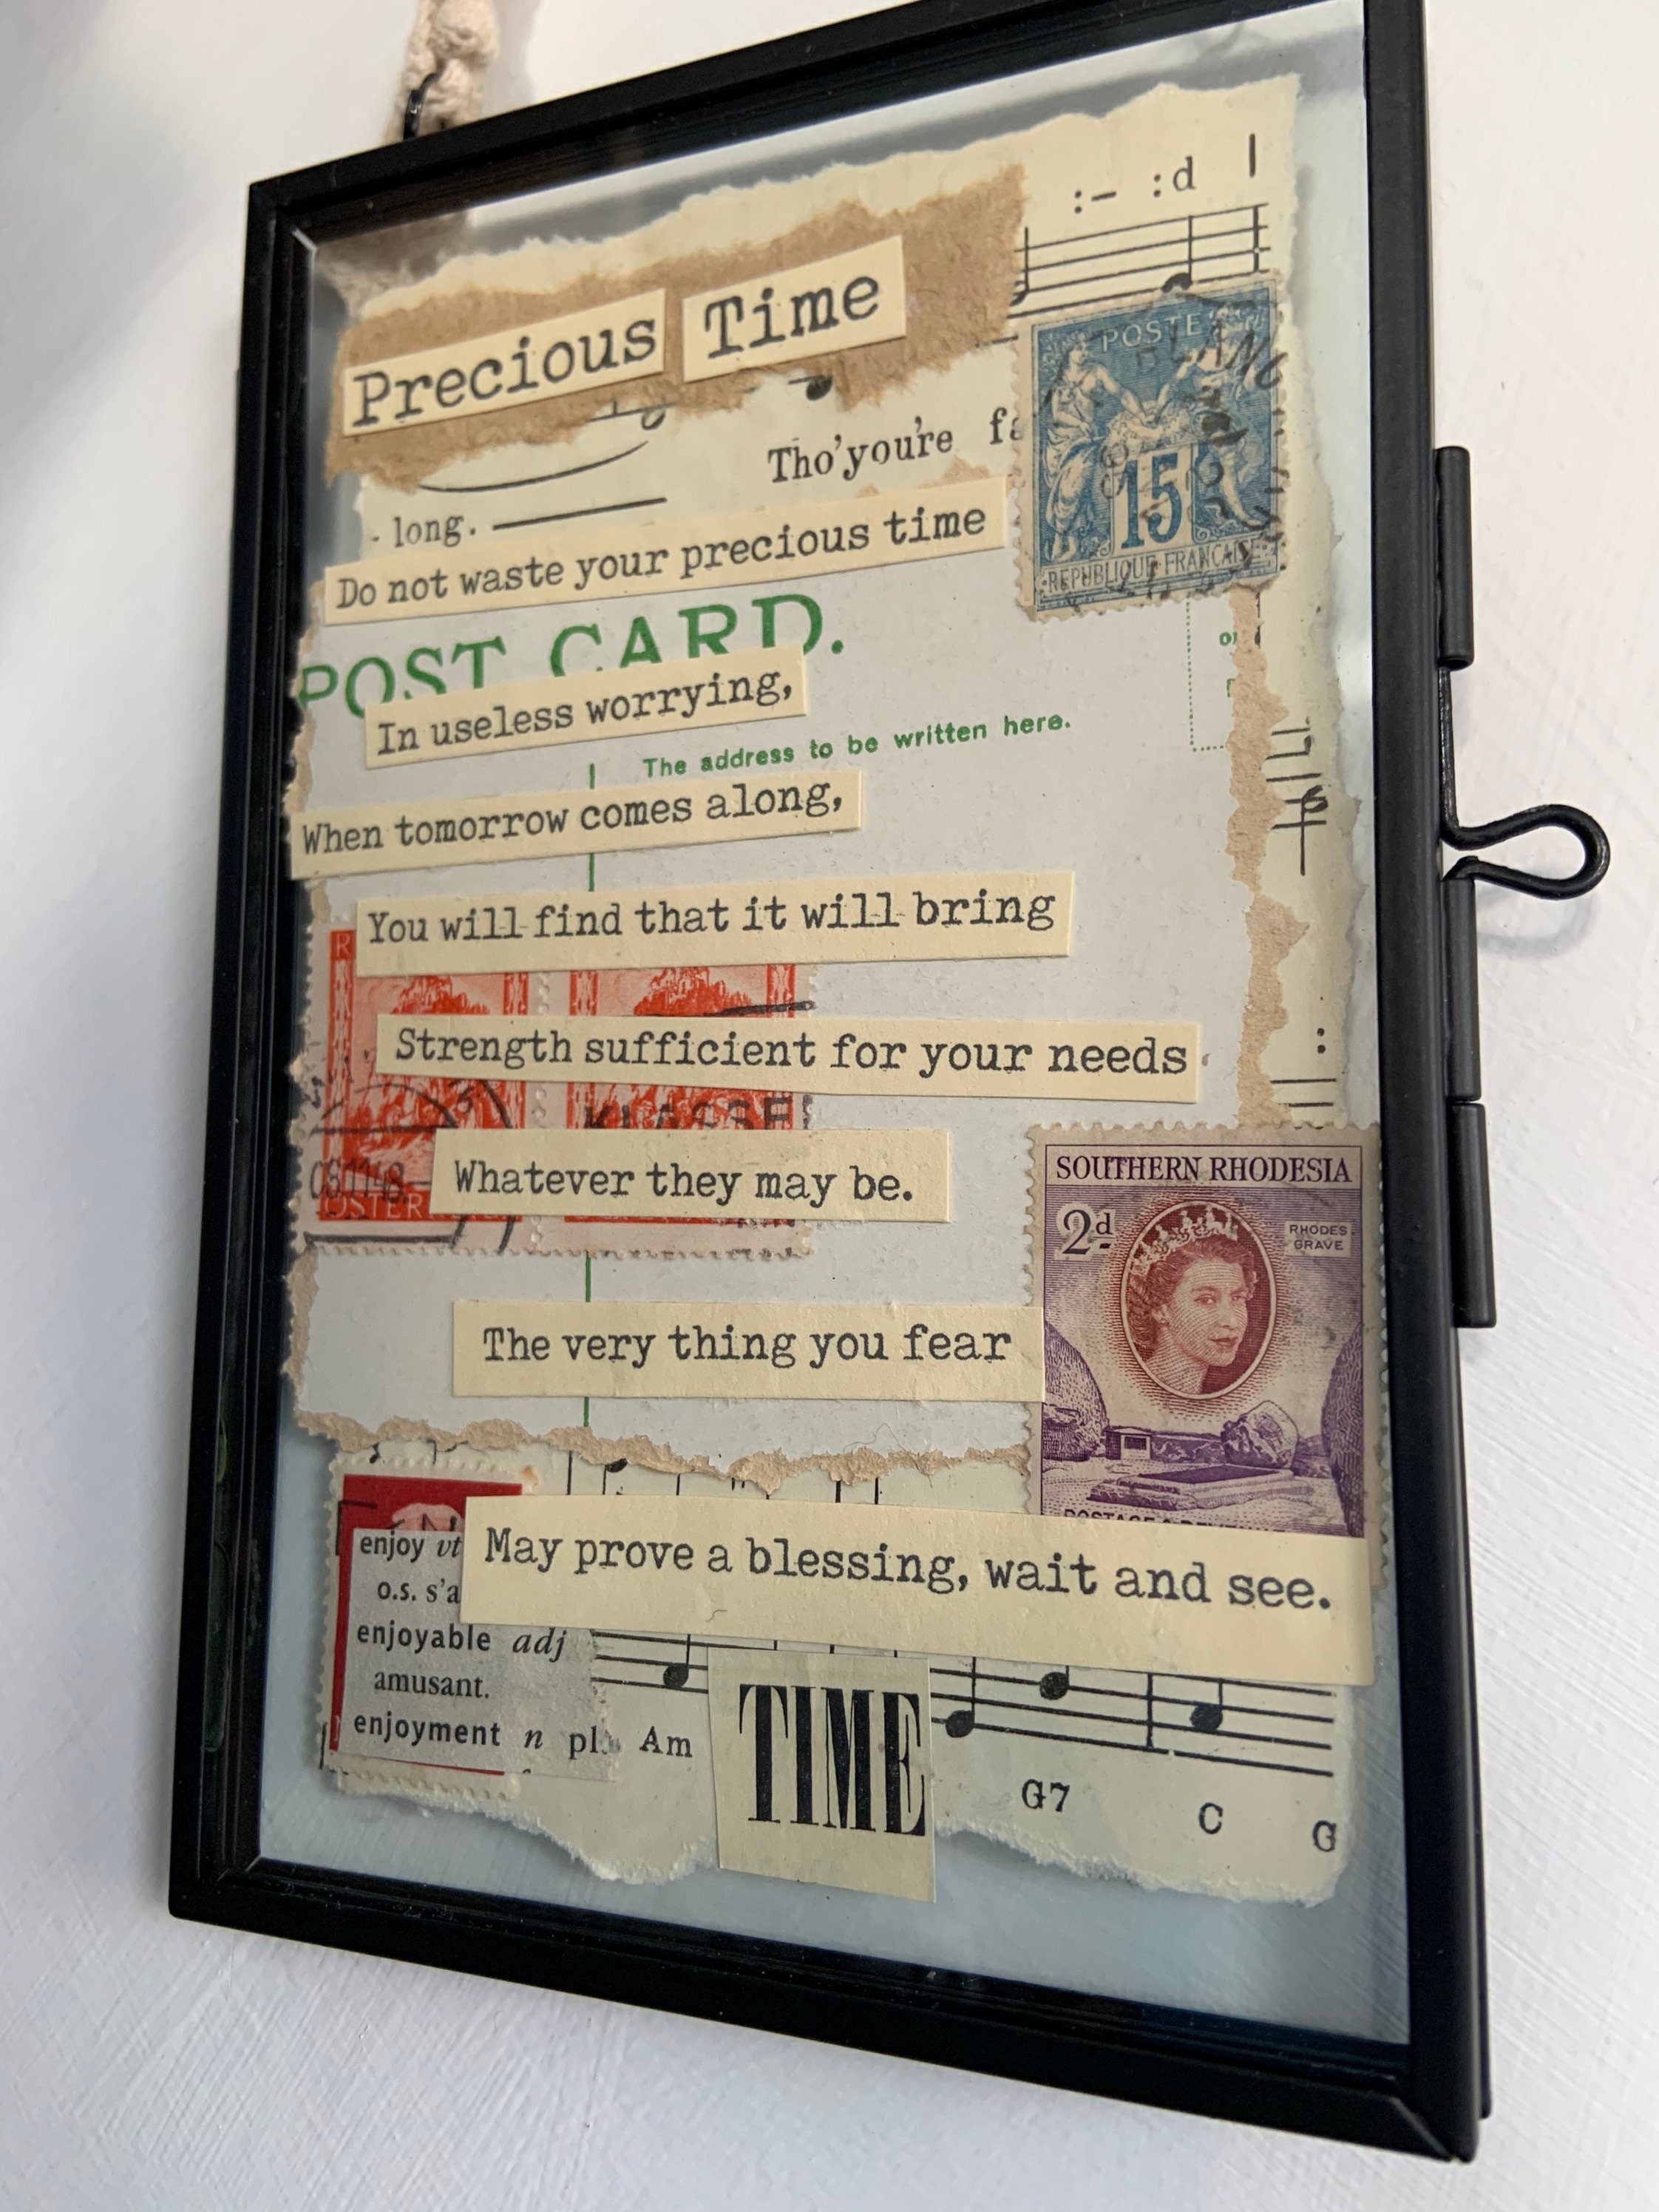 :– :d
Precious Time
POSTE
Tho'you're
15
- long.
REPUBLIQUE FRANCAISE
Do not waste your precious time
POST CARD.
In useless worrying,
The address to be written here.
When tomorrow comes along,
You will find that it will bring
R
Strength sufficient for your needs
Whatever they may be.
SOUTHERN RHODESIA
2d
RHODES GRAVE
OSTER
The very thing you fear
POSTAGE &
enjoy vt
May prove a blessing, wait and see.
o.s. s'a
enjoyable adj
amusant.
enjoyment n pl
Am
TIME
G7 C G